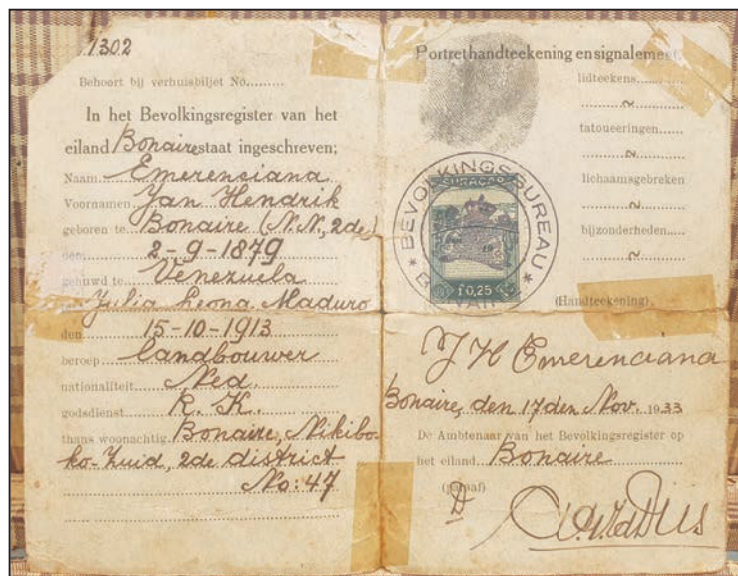 1302
Behoort bij verhuisbiljet No.........
In het Bevolkingsregister van het
eiland Bonaire staat ingeschreven;
Naam Emerenciana
Voornamen Jan Hendrik
geboren te Bonaire (N.N., 2de)
den 2-9-1879
gehuwd te Venezuela
Julia Leona Maduro
den 15-10-1913
beroep landbouwer
nationaliteit Ned.
godsdienst R. K.
thans woonachtig Bonaire, Nikibo-
ko-Zuid, 2de district
No: 47
Portret handteekening en signalement
lidteekens........
~
tatoueeringen......
~
lichaamsgebreken
~
bijzonderheden.....
~
BEVOLKINGSBUREAU
CURAÇAO
f 0,25
(Handteekening)
J H Emerenciana
Bonaire, den 17den Nov. 1933
De Ambtenaar van het Bevolkingsregister op
het eiland Bonaire
(paraaf)